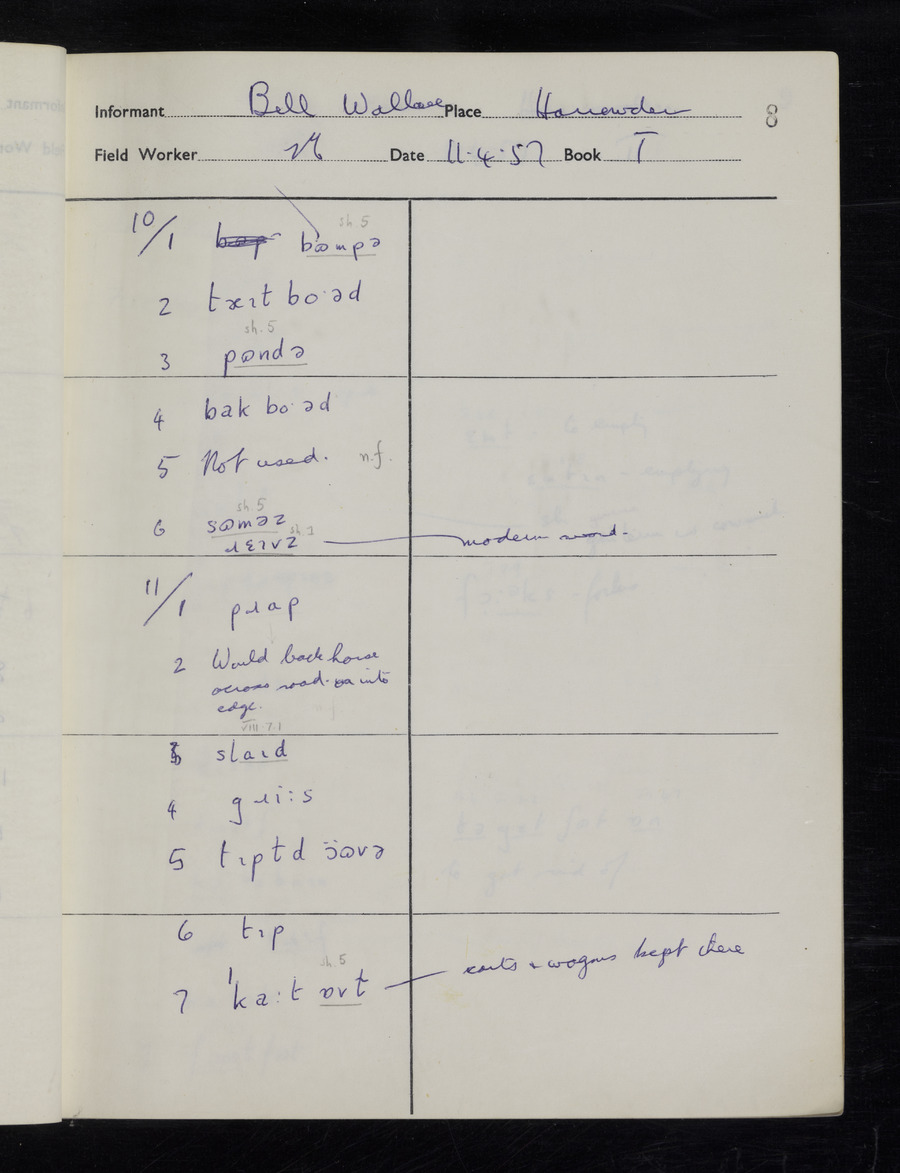 Informant Bell Wallace Place Harrowden 8
Field Worker Date 11.4.57 Book I
sh. 5
10/1 bɷmpə
2 tæɪt bo·əd
sh. 5
3 pɷndə
4 bak bo·əd
5 Not used. n.f.
sh. 5
6 sɷməz
sh. 1
ɹɛɪvz modern word.
11/1 pɹap
2 Would back horse
across road. into
edge.
VIII 7.1
3 slaɪd
4 gɹiːs
5 tɪptd ɔɷvə
6 tɪp
sh. 5
7 ˈkaːt ɒvt carts & wagons kept there